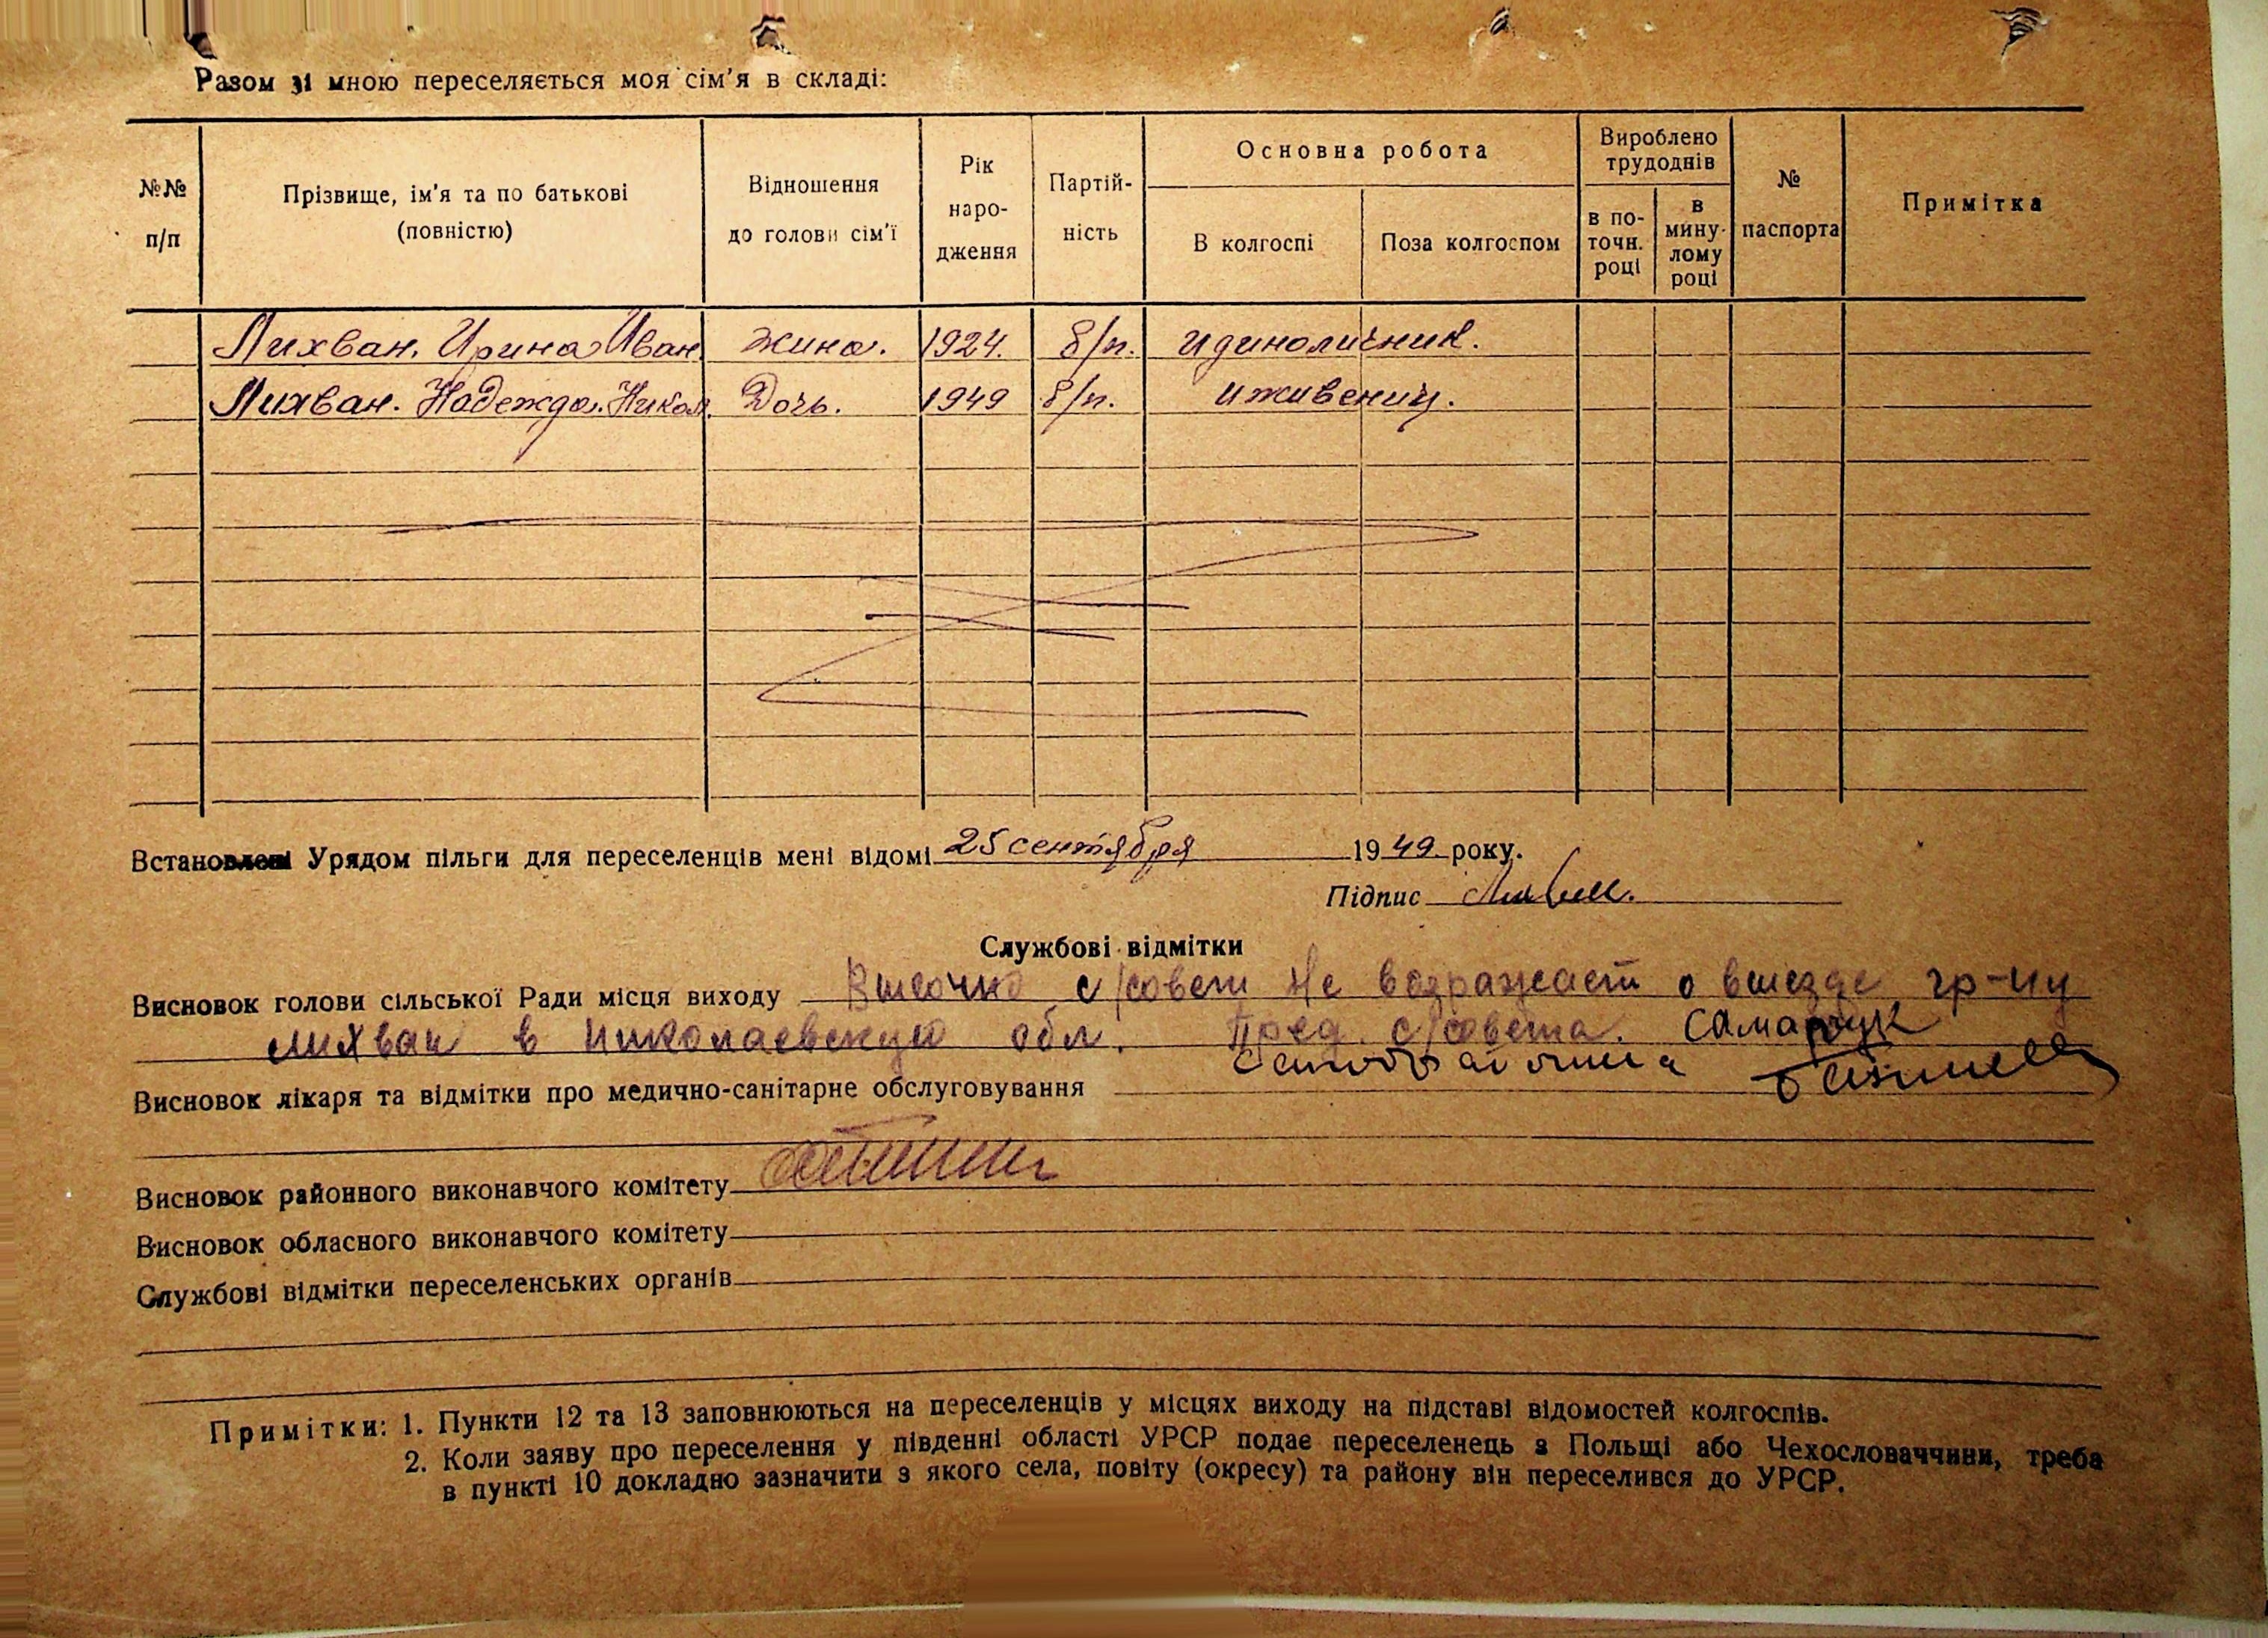 Разом зі мною переселяється моя сім'я в складі:
№№ п/п
Прізвище, ім'я та по батькові (повністю)
Відношення до голови сім'ї
Рік народження
Партійність
Основна робота
В колгоспі
Поза колгоспом
Вироблено трудоднів
в поточн. році
в минулому році
№ паспорта
Примітка
Лихван. Ирина Иван. жина. 1924. б/п. идиноличник.
Лихван. Надежда. Никол. Дочь. 1949 б/п. иживениц.
Встановлені Урядом пільги для переселенців мені відомі 25 сентября 1949 року.
Підпис
Службові відмітки
Висновок голови сільської Ради місця виходу с/совет не возражает о выезде гр-ну
Лихван в Николаевскую обл. Пред. с/совета. Самарчук
Висновок лікаря та відмітки про медично-санітарне обслуговування
Висновок районного виконавчого комітету
Висновок обласного виконавчого комітету
Службові відмітки переселенських органів
Примітки: 1. Пункти 12 та 13 заповнюються на переселенців у місцях виходу на підставі відомостей колгоспів.
2. Коли заяву про переселення у південні області УРСР подає переселенець з Польщі або Чехословаччини, треба
в пункті 10 докладно зазначити з якого села, повіту (окресу) та району він переселився до УРСР.